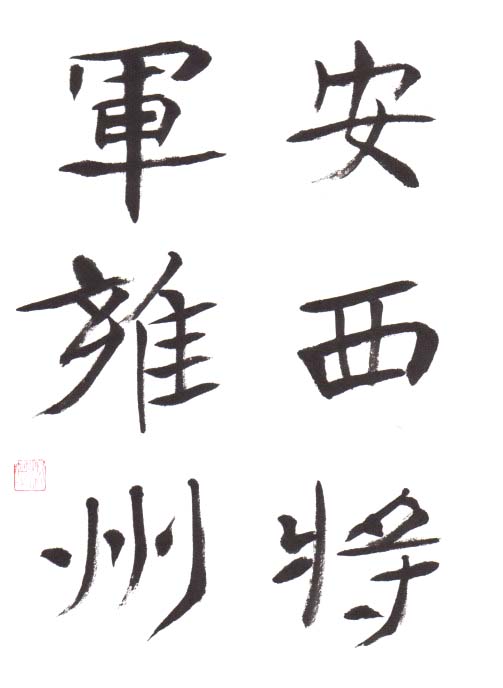 安西將
軍雍州